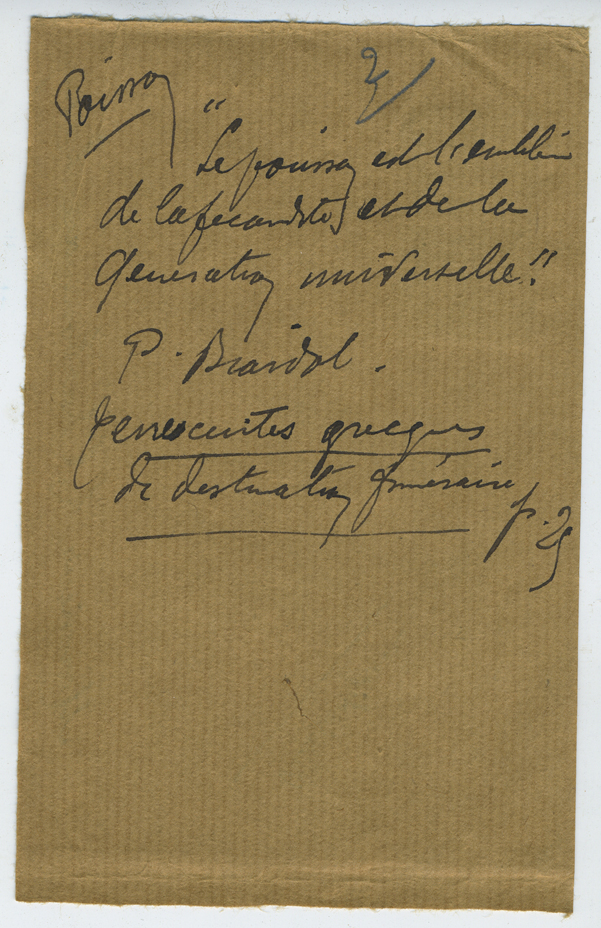 Poisson
"Le poisson est l'emblème
de la fécondité et de la
génération universelle."
P. Biardot.
Terres cuites grecques
de destination funéraire
p. 25